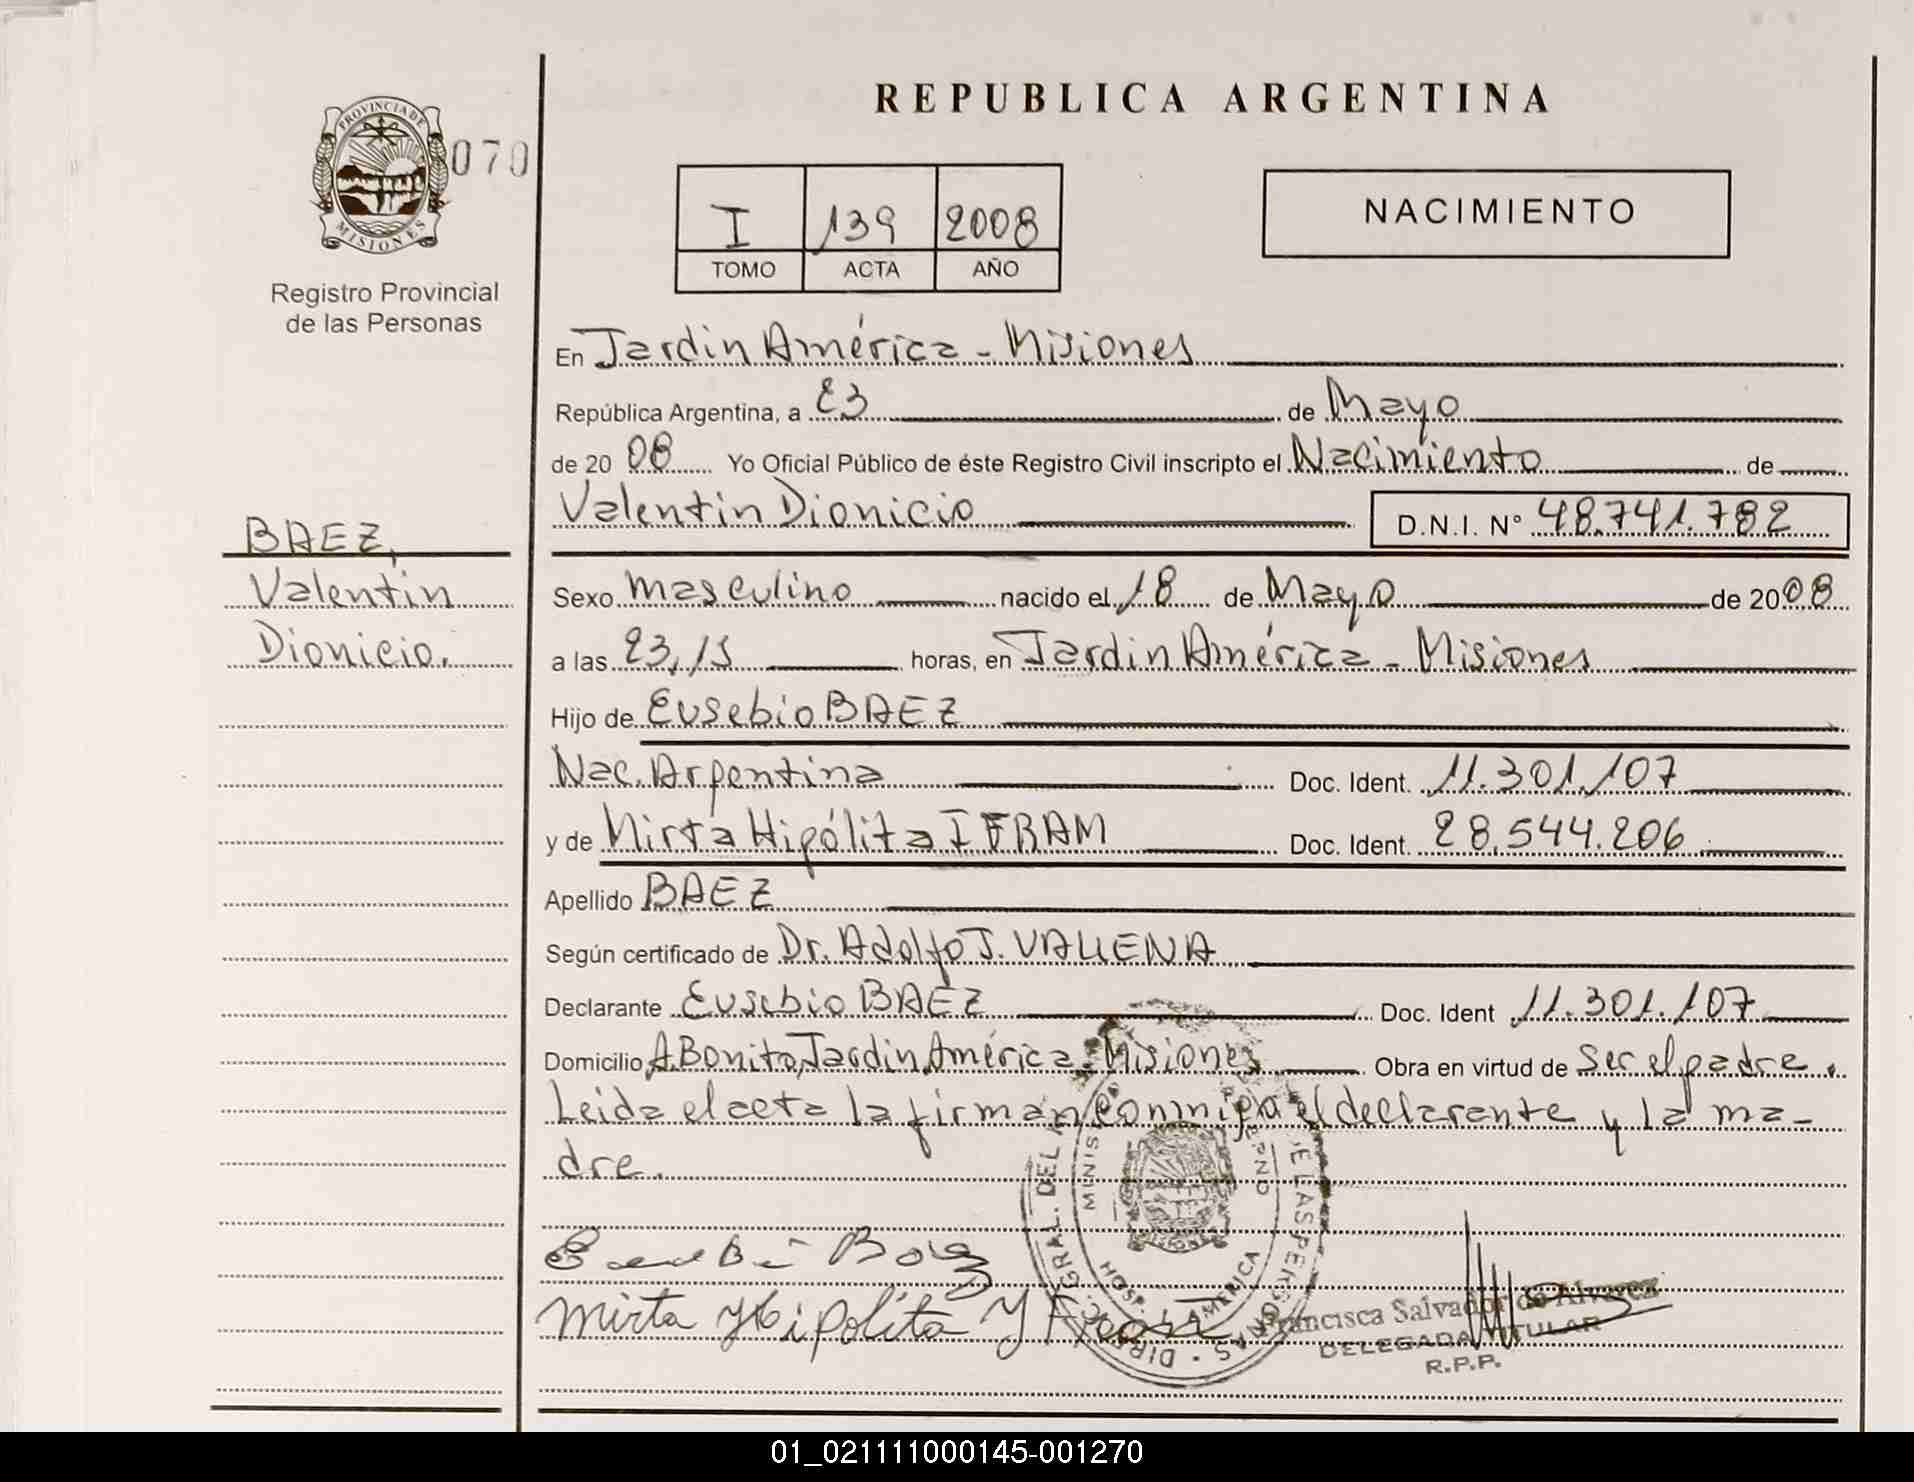 REPUBLICA ARGENTINA
PROVINCIA DE
MISIONES
070
Registro Provincial
de las Personas
I 139 2008
TOMO ACTA AÑO
NACIMIENTO
En Jardin América - Misiones
República Argentina, a 23 de Mayo
de 20 08 Yo Oficial Público de éste Registro Civil inscripto el Nacimiento de
Valentin Dionicio D.N.I. N° 48.741.782
BAEZ,
Valentin
Dionicio.
Sexo masculino nacido el 18 de Mayo de 2008
a las 23,15 horas, en Jardin América - Misiones
Hijo de Eusebio BAEZ
Nac. Argentina Doc. Ident. 11.301.107
y de Mirta Hipólita Doc. Ident. 28.544.206
Apellido BAEZ
Según certificado de Dr. Adolfo J.
Declarante Eusebio BAEZ Doc. Ident 11.301.107
Domicilio A. Bonito, Jardin América - Misiones Obra en virtud de ser el padre.
Leida el acta la firman conmigo el declarante y la ma-
dre.
Mirta Hipolita
Francisca Salvador de Alvarez
DELEGADA TITULAR
R.P.P.
01_021111000145-001270